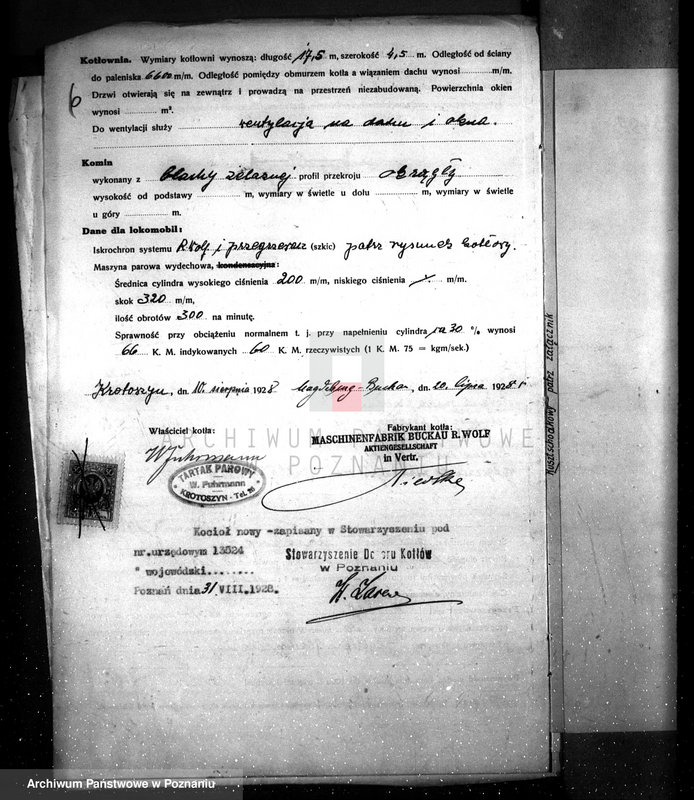 Kotłownia. Wymiary kotłowni wynoszą: długość 17,5 m, szerokość 4,5 m. Odległość od ściany
do paleniska 6600 m/m. Odległość pomiędzy obmurzem kotła a wiązaniem dachu wynosi ........ m/m.
Drzwi otwierają się na zewnątrz i prowadzą na przestrzeń niezabudowaną. Powierzchnia okien
wynosi ........ m².
Do wentylacji służy wentylacja na dachu i okna.
Komin
wykonany z blachy żelaznej profil przekroju okrągły
wysokość od podstawy ........ m, wymiary w świetle u dołu ........ m, wymiary w świetle
u góry ........ m.
Dane dla lokomobil:
Iskrochron systemu R. Wolf i przegrzewacz (szkic) patrz rysunek kotłowy.
Maszyna parowa wydechowa, kondensacyjna:
Średnica cylindra wysokiego ciśnienia 200 m/m, niskiego ciśnienia ./. m/m.
skok 320 m/m,
ilość obrotów 300 na minutę.
Sprawność przy obciążeniu normalnem t. j. przy napełnieniu cylindra na 30 % wynosi
66 K. M. indykowanych 60 K. M. rzeczywistych (1 K. M. 75 = kgm/sek.)
Krotoszyn, dn. 10. sierpnia 1928 Magdeburg-Buckau, dn. 20. lipca 1928 r
Właściciel kotła: Fabrykant kotła:
MASCHINENFABRIK BUCKAU R. WOLF
AKTIENGESELLSCHAFT
in Vertr.
W Fuhrmann
TARTAK PAROWY
W. Fuhrmann
KROTOSZYN - Tel. 21
Kocioł nowy -zapisany w Stowarzyszeniu pod
nr.urzędowym 13524
" wojewódzki........
Poznań dnia 31 VIII. 1928.
Stowarzyszenie Dozoru Kotłów
w Poznaniu
patrz załącznik
ARCHIWUM PAŃSTWOWE
W POZNANIU
Archiwum Państwowe w Poznaniu